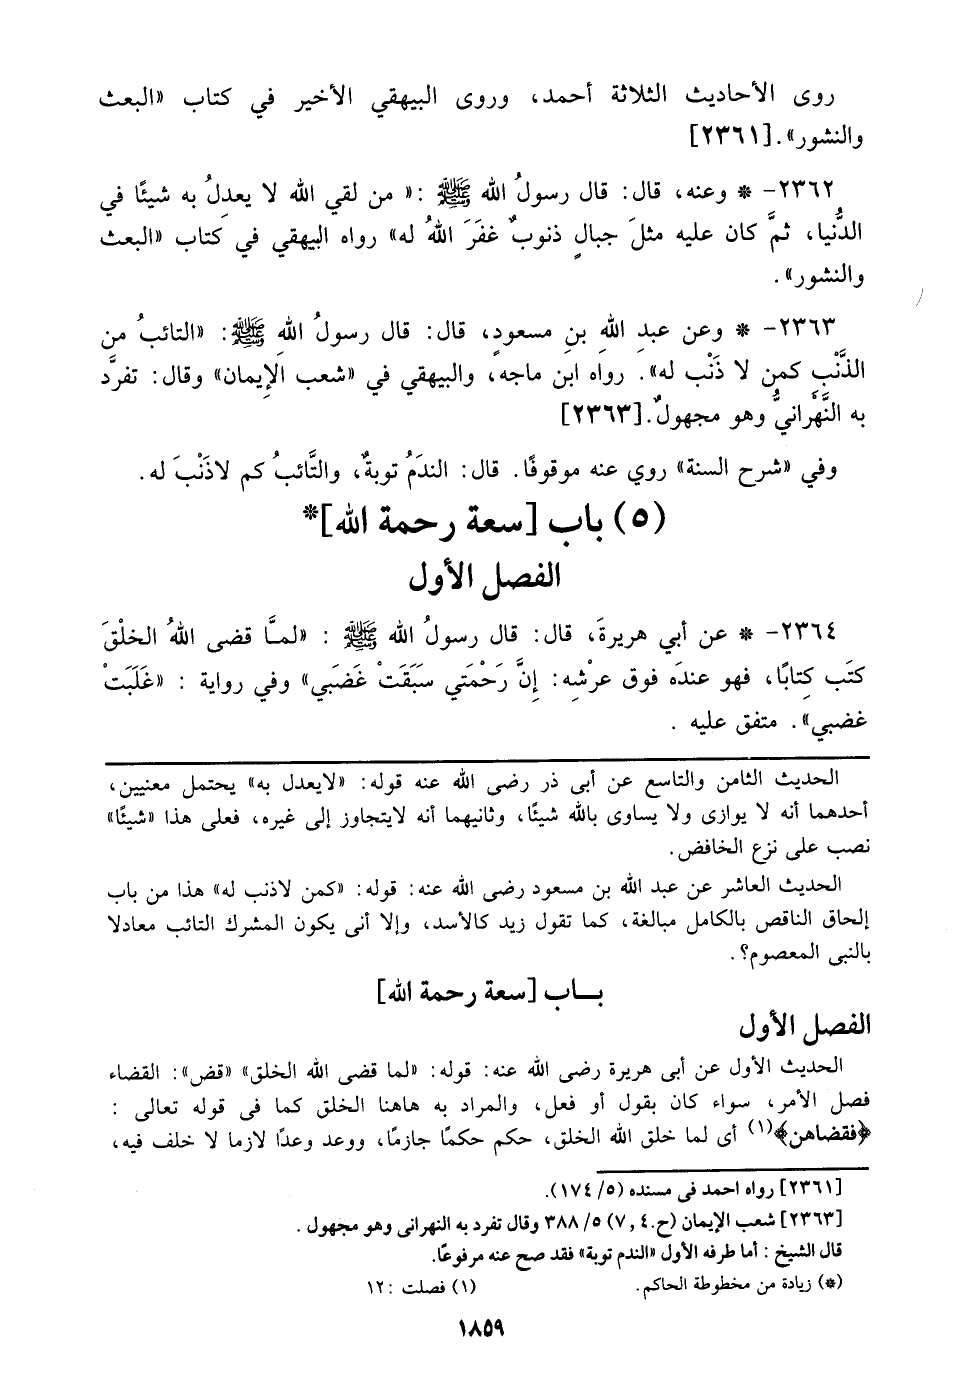 روى الأحاديث الثلاثة أحمد، وروى البيهقي الأخير في كتاب «البعث
والنشور».[٢٣٦١]
٢٣٦٢- * وعنه، قال: قال رسولُ الله ﷺ :« من لقي الله لا يعدِلُ به شيئًا في
الدُّنيا، ثمَّ كان عليه مثلَ جبالٍ ذنوبٌ غفَرَ اللهُ له» رواه البيهقي في كتاب «البعث
والنشور».
٢٣٦٣- * وعن عبدِ اللهِ بنِ مسعودٍ، قال: قال رسولُ اللهِ ﷺ: «التائبُ من
الذَّنْبِ كمن لا ذَنْب له». رواه ابن ماجه، والبيهقي في «شعب الإِيمان» وقال: تفرَّد
به النَّهْرانيُّ وهو مجهولٌ.[٢٣٦٣]
وفي «شرح السنة» روي عنه موقوفًا. قال: الندَمُ توبةٌ، والتَّائبُ كم لاذَنْبَ له.
(٥) باب [سعة رحمة الله]*
الفصل الأول
٢٣٦٤- * عن أبي هريرةَ، قال: قال رسولُ الله ﷺ : «لمـَّا قضى اللهُ الخلْقَ
كتَب كِتابًا، فهو عندَه فوق عرْشِه: إِنَّ رَحْمَتي سَبَقَتْ غَضَبي» وفي رواية : «غَلَبَتْ
غضبي». متفق عليه .
الحديث الثامن والتاسع عن أبى ذر رضى الله عنه قوله: «لايعدل به» يحتمل معنيين،
أحدهما أنه لا يوازى ولا يساوى بالله شيئًا، وثانيهما أنه لايتجاوز إلى غيره، فعلى هذا «شيئًا»
نصب على نزع الخافض.
الحديث العاشر عن عبد الله بن مسعود رضى الله عنه: قوله: «كمن لاذنب له» هذا من باب
إلحاق الناقص بالكامل مبالغة، كما تقول زيد كالأسد، وإلا أنى يكون المشرك التائب معادلا
بالنبى المعصوم؟.
بـــاب [سعة رحمة الله]
الفصل الأول
الحديث الأول عن أبى هريرة رضى الله عنه: قوله: «لما قضى الله الخلق» «قض»: القضاء
فصل الأمر، سواء كان بقول أو فعل، والمراد به هاهنا الخلق كما فى قوله تعالى :
﴿فقضاهن﴾(١) أى لما خلق الله الخلق، حكم حكمًا جازمًا، ووعد وعدًا لازما لا خلف فيه،
[٢٣٦١] رواه احمد فى مسنده (٥/ ١٧٤).
[٢٣٦٣] شعب الإيمان (ح.٧,٤) ٥/ ٣٨٨ وقال تفرد به النهرانى وهو مجهول .
قال الشيخ : أما طرفه الأول «الندم توبة» فقد صح عنه مرفوعًا.
(*) زيادة من مخطوطة الحاكم. (١) فصلت :١٢
١٨٥٩